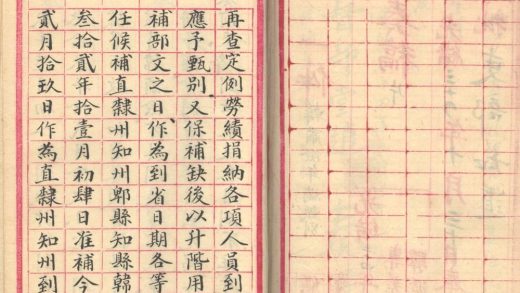 再查定例勞績捐納各項人員到
應予甄別又保補缺後以升階用
補部文之日作為到省日期各等
任候補直隸州知州郫縣知縣韓
叁拾貳年拾壹月初肆日准補今
貳月拾玖日作為直隸州知州到